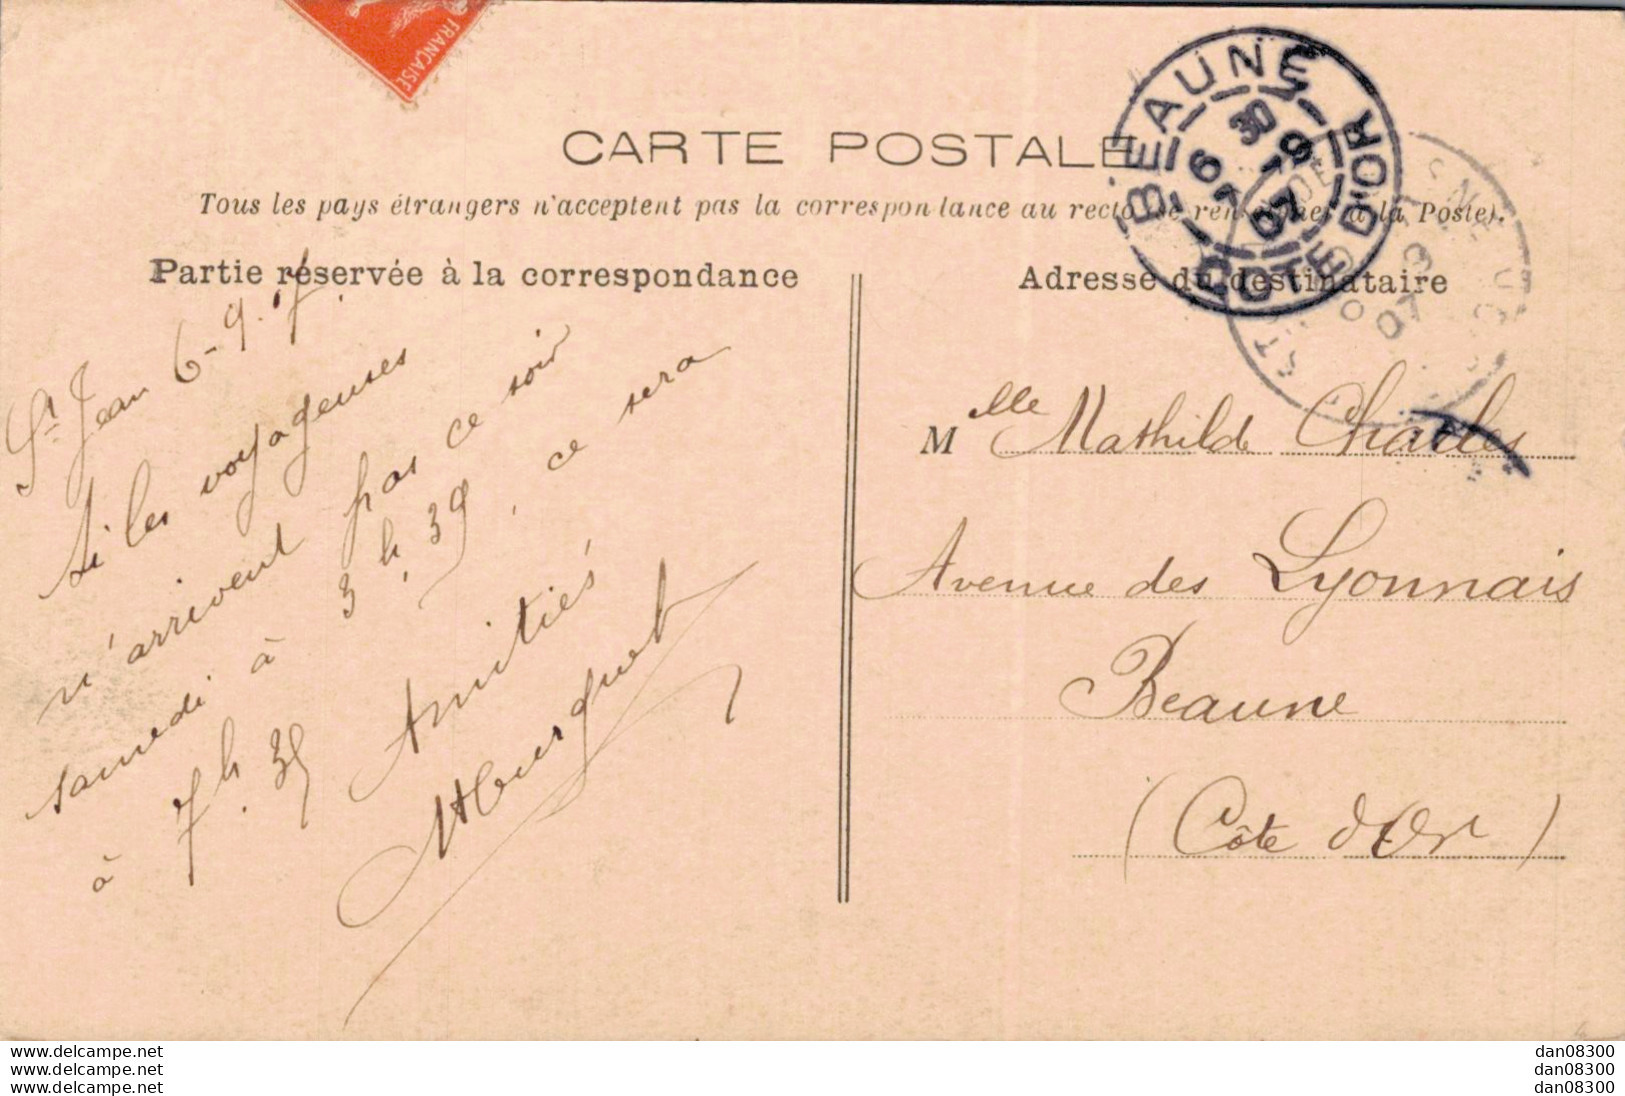 FRANÇAISE
CARTE POSTALE
Tous les pays étrangers n'acceptent pas la correspondance au recto (se renseigner à la Poste).
Partie réservée à la correspondance
St Jean 6-9.07.
Si les voyageuses
n'arrivent pas ce soir
samedi à 3h.39, ce sera
à 7h.35
Amitiés
Adresse du destinataire
BEAUNE
COTE D'OR
6 30
7 -9
07
Mlle Mathilde Charles
Avenue des Lyonnais
Beaune
(Côte d'Or)
www.delcampe.net
www.delcampe.net
www.delcampe.net
dan08300
dan08300
dan08300